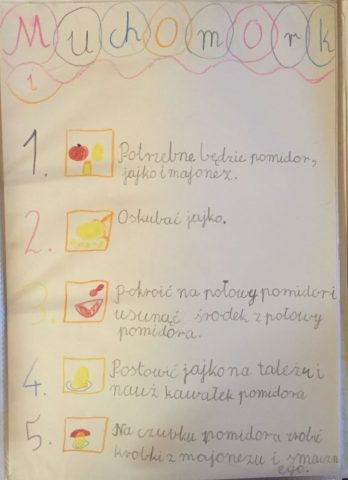 Muchomork
1
1. Potrzebne będzie pomidor,
jajko i majonez.
2. Oskubać jajko.
3. pokroić na połowy pomidor i
usunąć środek z połowy
pomidora.
4. Postawić jajko na tależu i
nauż kawałek pomidora
5. Na czubku pomidora zrobić
kropki z majonezu i smaczn
ego.